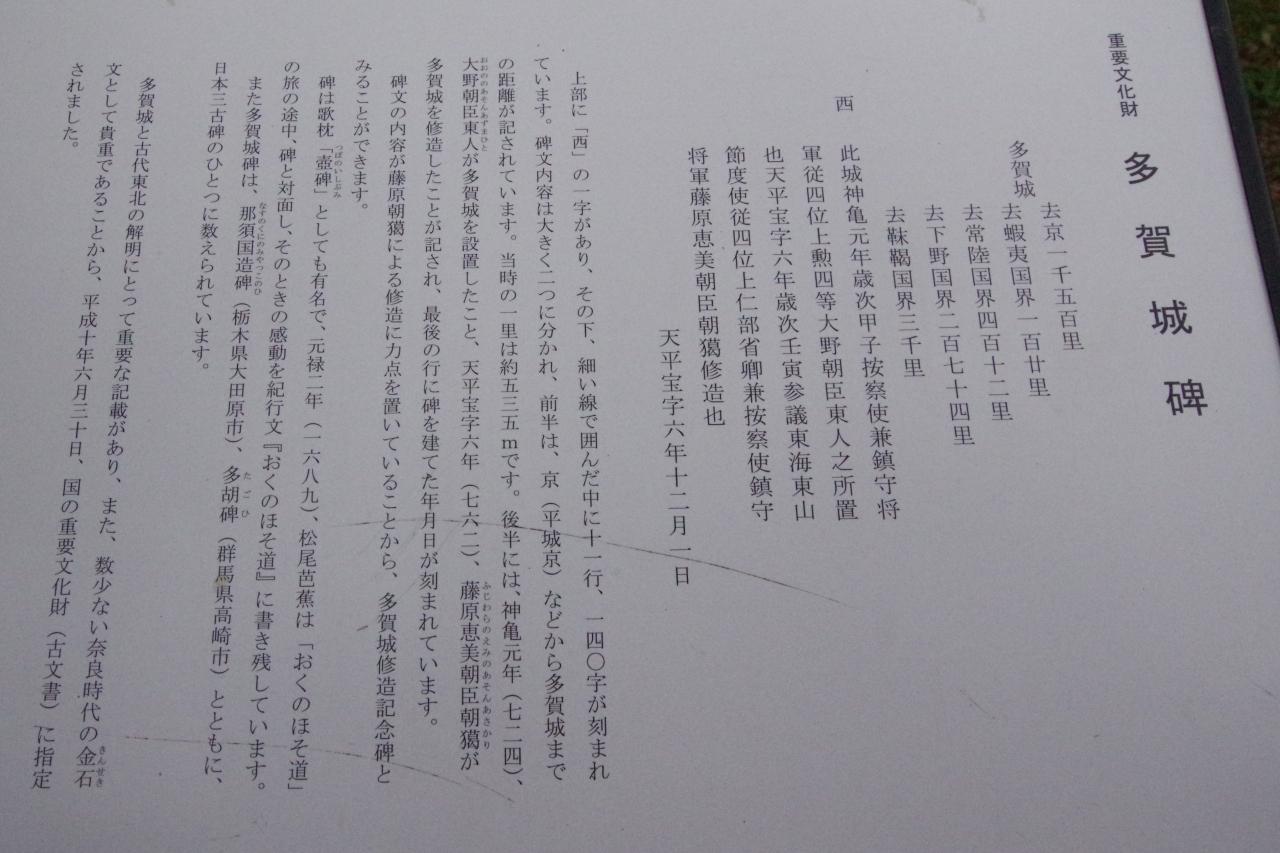 重要文化財
多賀城碑
多賀城
去京一千五百里
去蝦夷国界一百廿里
去常陸国界四百十二里
去下野国界二百七十四里
去靺鞨国界三千里
西
此城神亀元年歳次甲子按察使兼鎮守将
軍従四位上勲四等大野朝臣東人之所置
也天平宝字六年歳次壬寅参議東海東山
節度使従四位上仁部省卿兼按察使鎮守
将軍藤原恵美朝臣朝獦修造也
天平宝字六年十二月一日
上部に「西」の一字があり、その下、細い線で囲んだ中に十一行、一四〇字が刻まれ
ています。碑文内容は大きく二つに分かれ、前半は、京（平城京）などから多賀城まで
の距離が記されています。当時の一里は約五三五ｍです。後半には、神亀元年（七二四）、
大野朝臣東人が多賀城を設置したこと、天平宝字六年（七六二）、藤原恵美朝臣朝獦が
おおののあそんあずまひと
ふじわらのえみのあそんあさかり
多賀城を修造したことが記され、最後の行に碑を建てた年月日が刻まれています。
碑文の内容が藤原朝獦による修造に力点を置いていることから、多賀城修造記念碑と
みることができます。
碑は歌枕「壺碑」としても有名で、元禄二年（一六八九）、松尾芭蕉は「おくのほそ道」
つぼのいしぶみ
の旅の途中、碑と対面し、そのときの感動を紀行文『おくのほそ道』に書き残しています。
また多賀城碑は、那須国造碑（栃木県大田原市）、多胡碑（群馬県高崎市）とともに、
なすのくにのみやつこのひ
たごひ
日本三古碑のひとつに数えられています。
多賀城と古代東北の解明にとって重要な記載があり、また、数少ない奈良時代の金石
きんせき
文として貴重であることから、平成十年六月三十日、国の重要文化財（古文書）に指定
されました。